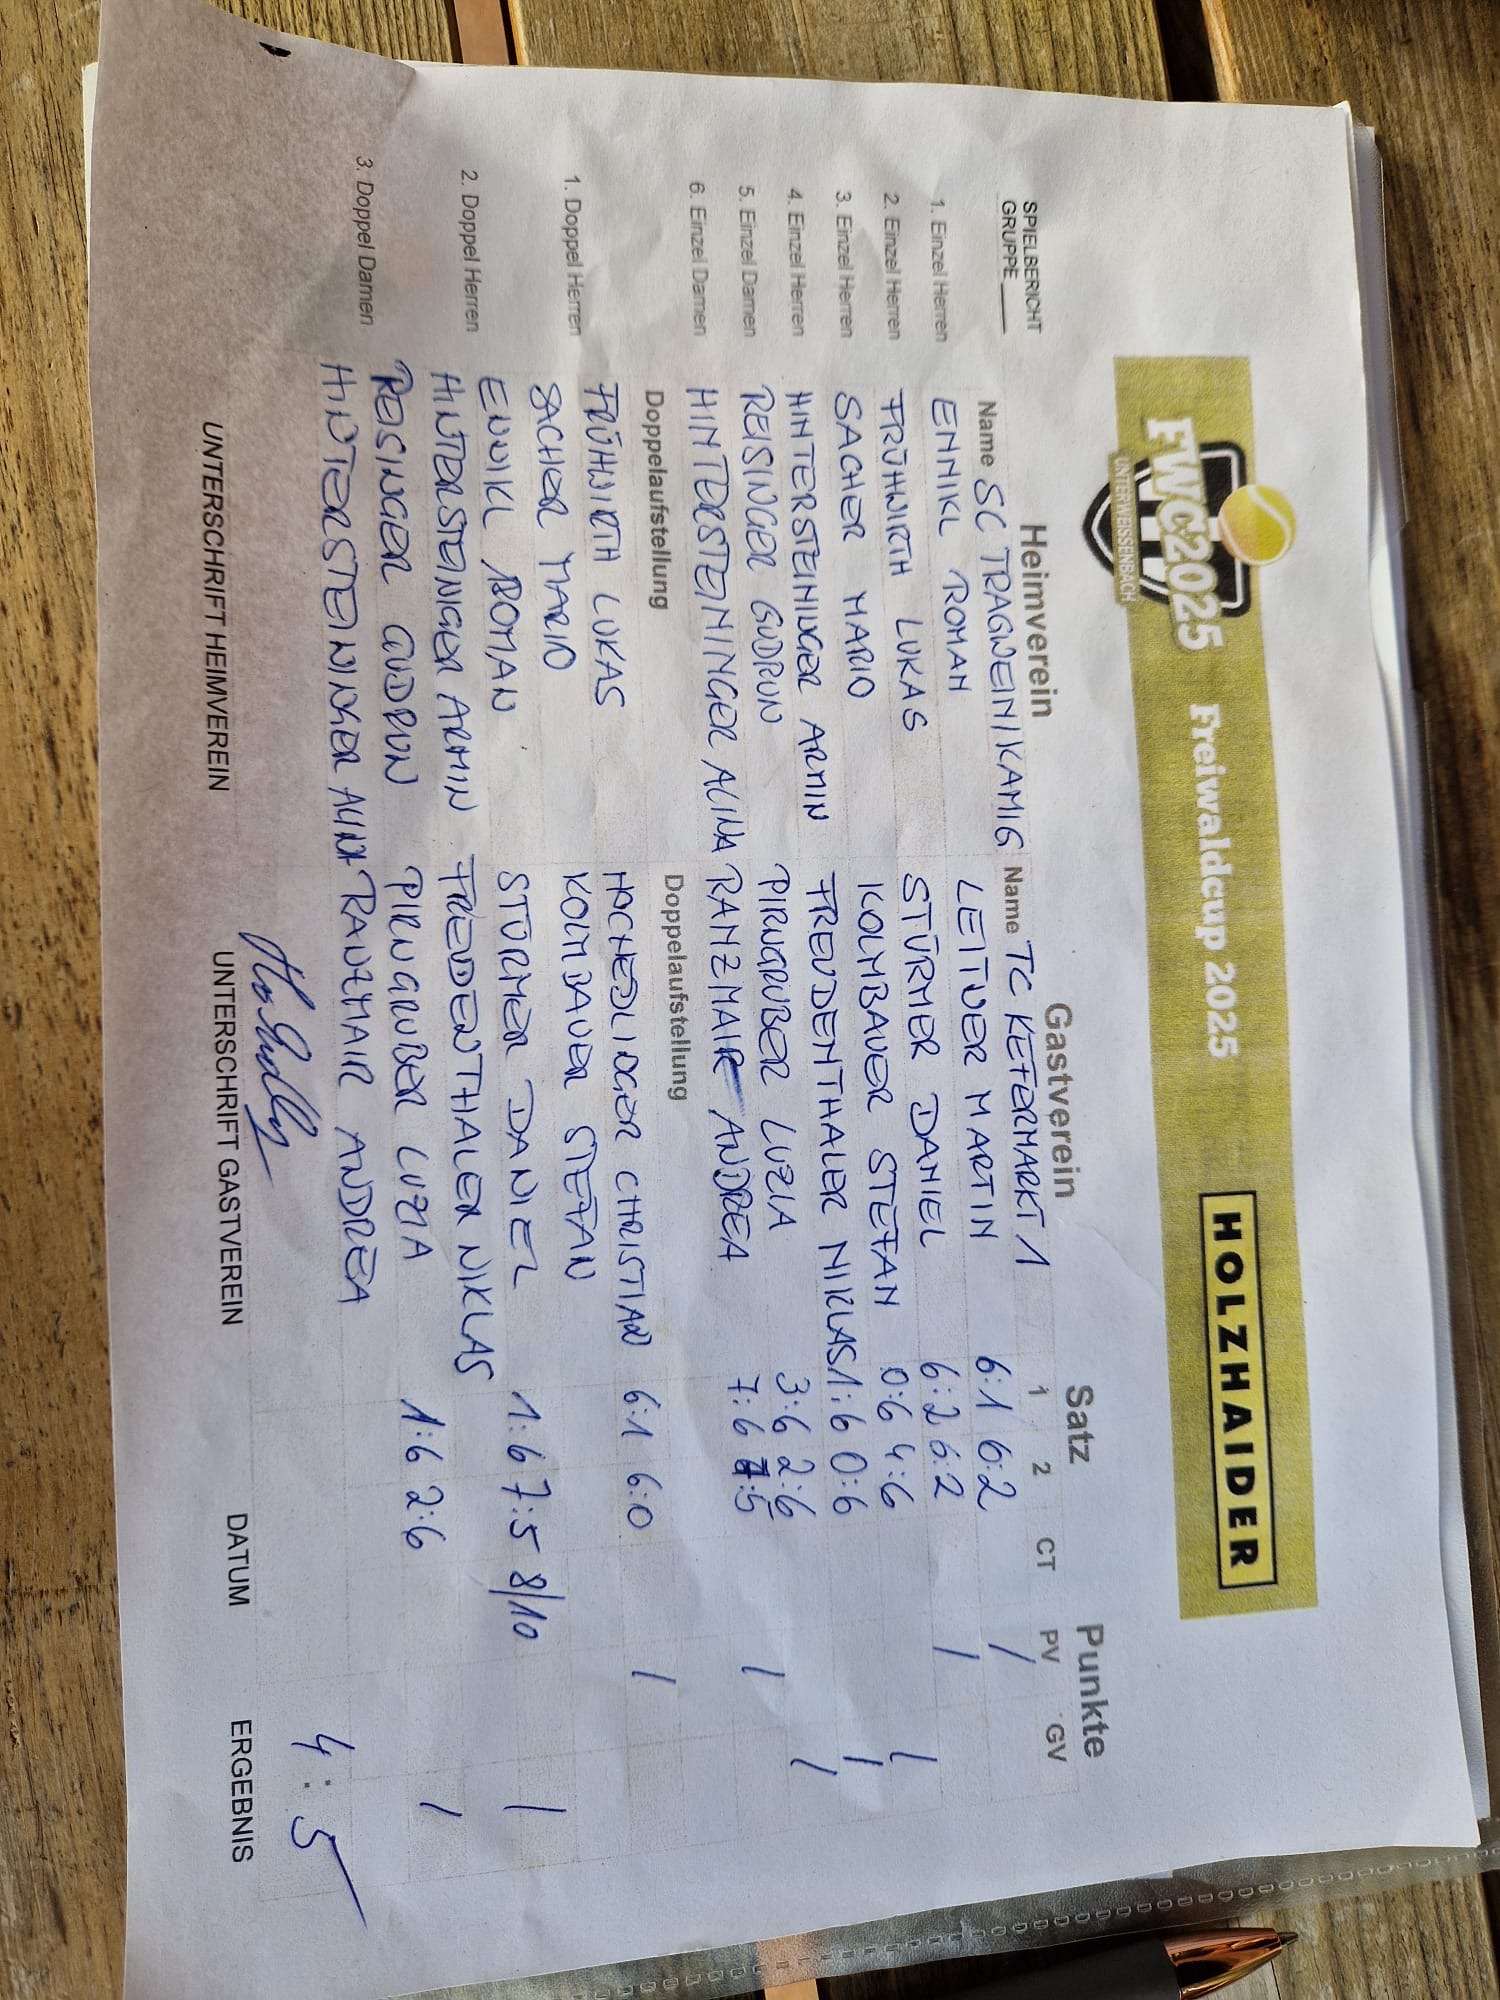 FWC2025
UNTERWEISSENBACH
Freiwaldcup 2025
HOLZHAIDER
SPIELBERICHT
GRUPPE____
Heimverein Gastverein Satz Punkte
Name SC TRAGWEIN/KAMIG Name TC KEFERMARKT 1 1 2 CT PV GV
1. Einzel Herren ENNIKL ROMAN LEITNER MARTIN 6:1 6:2 1
2. Einzel Herren FRÜHWIRTH LUKAS STÜRMER DANIEL 6:2 6:2 1
3. Einzel Herren SACHER MARIO KOLMBAUER STEFAN 0:6 4:6 1
4. Einzel Herren HINTERSTEININGER ARMIN FREUDENTHALER NIKLAS 1:6 0:6 1
5. Einzel Damen REISINGER GUDRUN PIRNGRUBER LUZIA 3:6 2:6 1
6. Einzel Damen HINTERSTEININGER ALINA RANZMAIR ANDREA 7:6 7:5 1
Doppelaufstellung Doppelaufstellung
1. Doppel Herren FRÜHWIRTH LUKAS HOCHEDLINGER CHRISTIAN 6:1 6:0 1
SACHER MARIO KOLMBAUER STEFAN
2. Doppel Herren ENNIKL ROMAN STÜRMER DANIEL 1:6 7:5 8/10 1
HINTERSTEINIGER ARMIN FREUDENTHALER NIKLAS
3. Doppel Damen REISINGER GUDRUN PIRNGRUBER LUZIA 1:6 2:6 1
HINTERSTEININGER ALINA RANZMAIR ANDREA
4:5
UNTERSCHRIFT HEIMVEREIN UNTERSCHRIFT GASTVEREIN DATUM ERGEBNIS